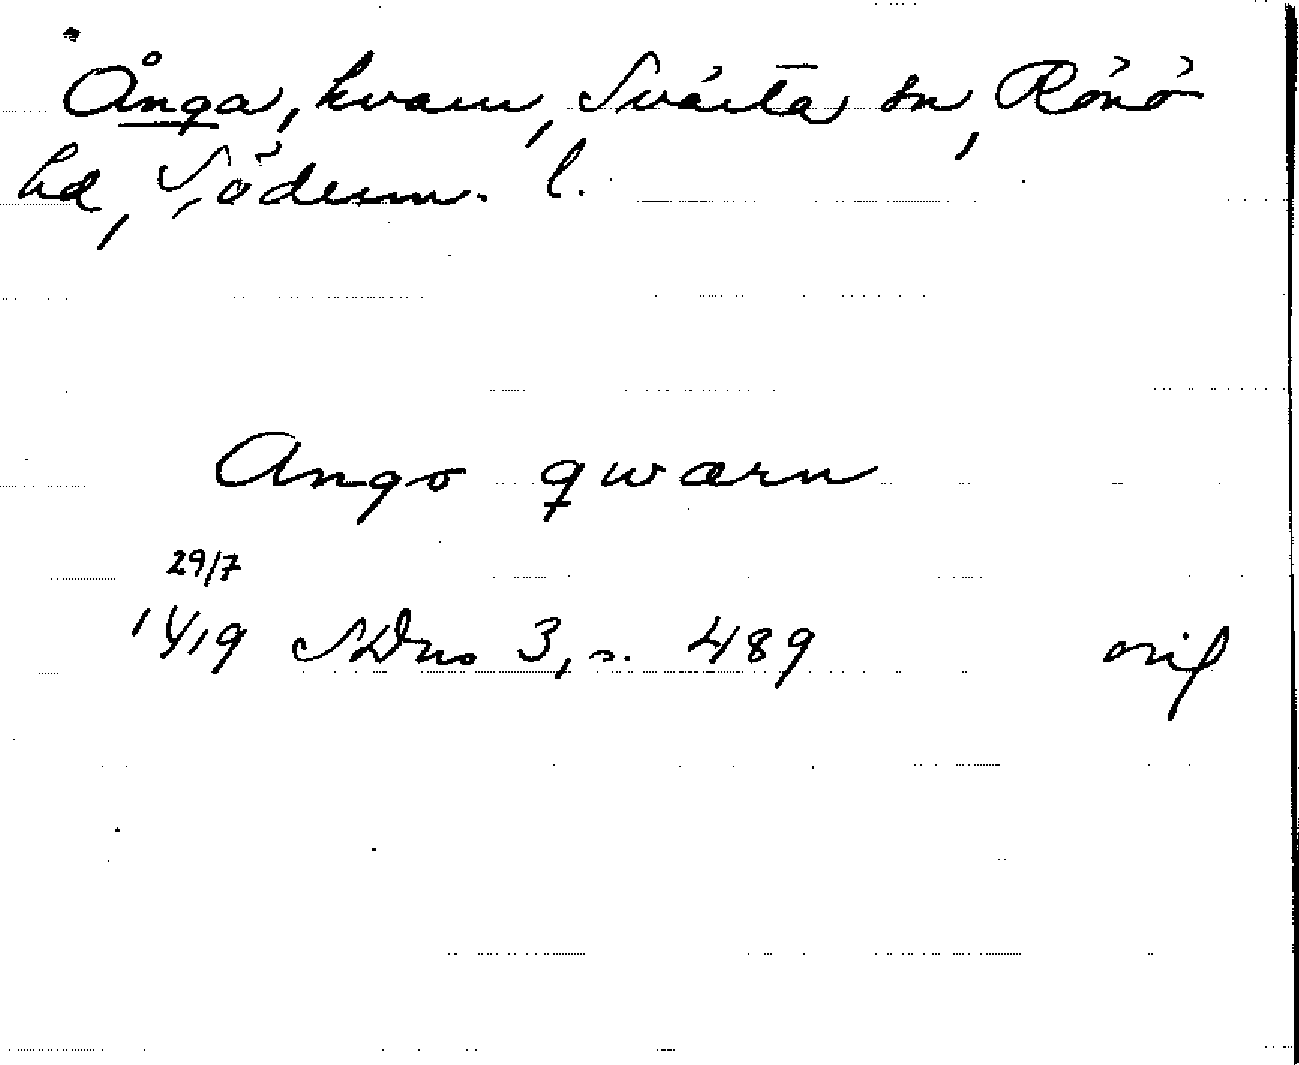 Ånga, kvarn, Svärta sn, Rönö
hd, Söderm. l.
Ango qwarn
29/7
1419 SDns 3, s. 489 orig